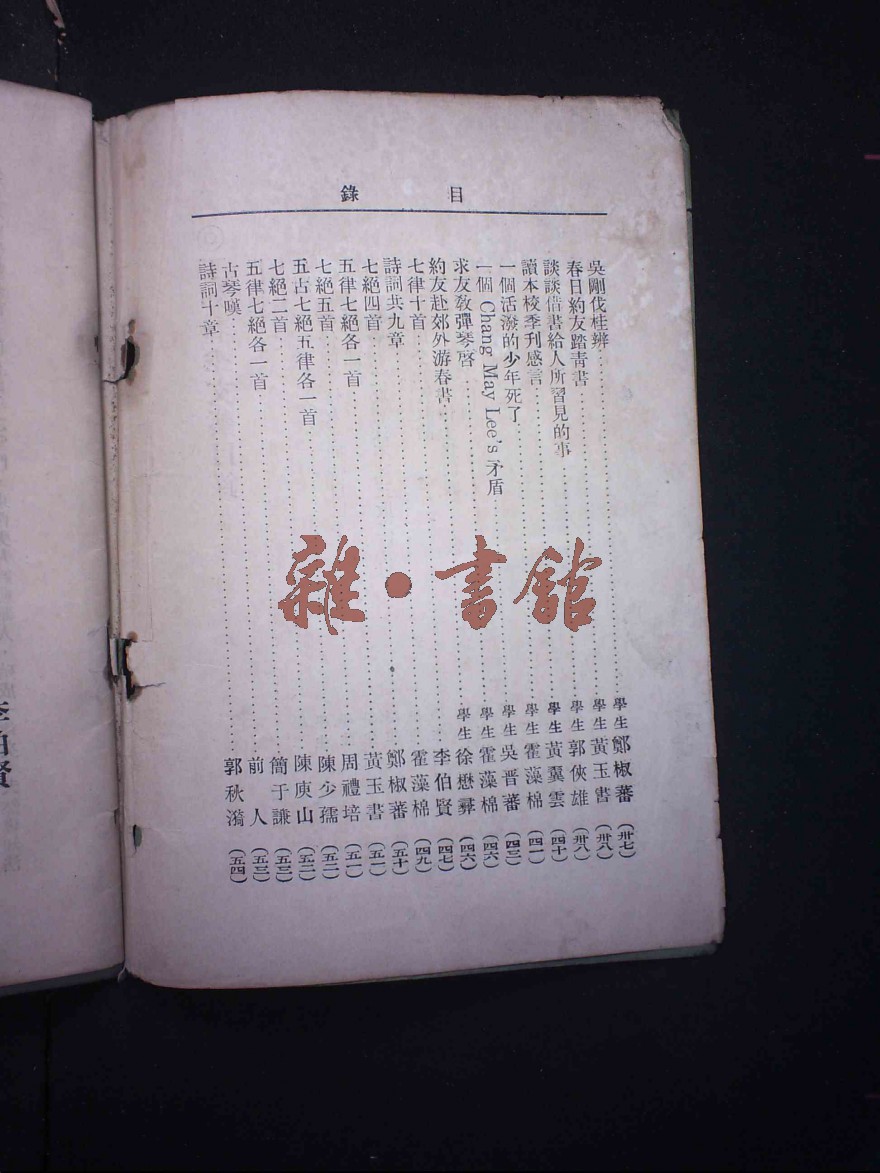 目錄
吳剛伐桂辨……學生鄭椒蕃(卅七)
春日約友踏青書……學生黃玉書(卅八)
談談借書給人所習見的事……學生郭俠雄(卅八)
讀本校季刊感言……學生黃翼雲(四十)
一個活潑的少年死了……學生霍藻棉(四一)
一個 Chang May Lee's 矛盾……學生吳晋蕃(四三)
求友敎彈琴啓……學生霍藻棉(四六)
約友赴郊外游春書……學生徐懋彛(四六)
七律十首……李伯賢(四七)
詩詞共九章……霍藻棉(四九)
七絕四首……鄭椒蕃(五十)
五律七絕各一首……黃玉書(五一)
七絕五首……周禮培(五一)
五古七絕五律各一首……陳少孺(五二)
七絕二首……陳庾山(五二)
五律七絕各一首……簡于謙(五三)
古琴嘆……前人(五三)
詩詞十章……郭秋漪(五四)
雜·書館